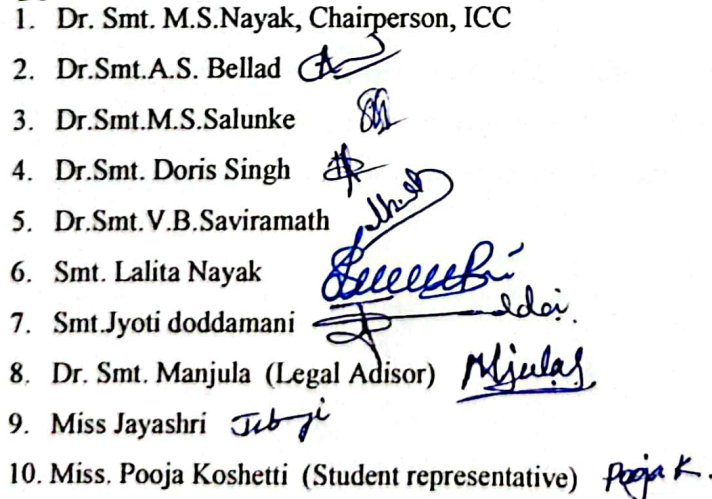 1. Dr. Smt. M.S.Nayak, Chairperson, ICC
2. Dr.Smt.A.S. Bellad
3. Dr.Smt.M.S.Salunke
4. Dr.Smt. Doris Singh
5. Dr.Smt.V.B.Saviramath
6. Smt. Lalita Nayak
7. Smt.Jyoti doddamani
8. Dr. Smt. Manjula (Legal Adisor)
9. Miss Jayashri
10. Miss. Pooja Koshetti (Student representative) Pooja K.